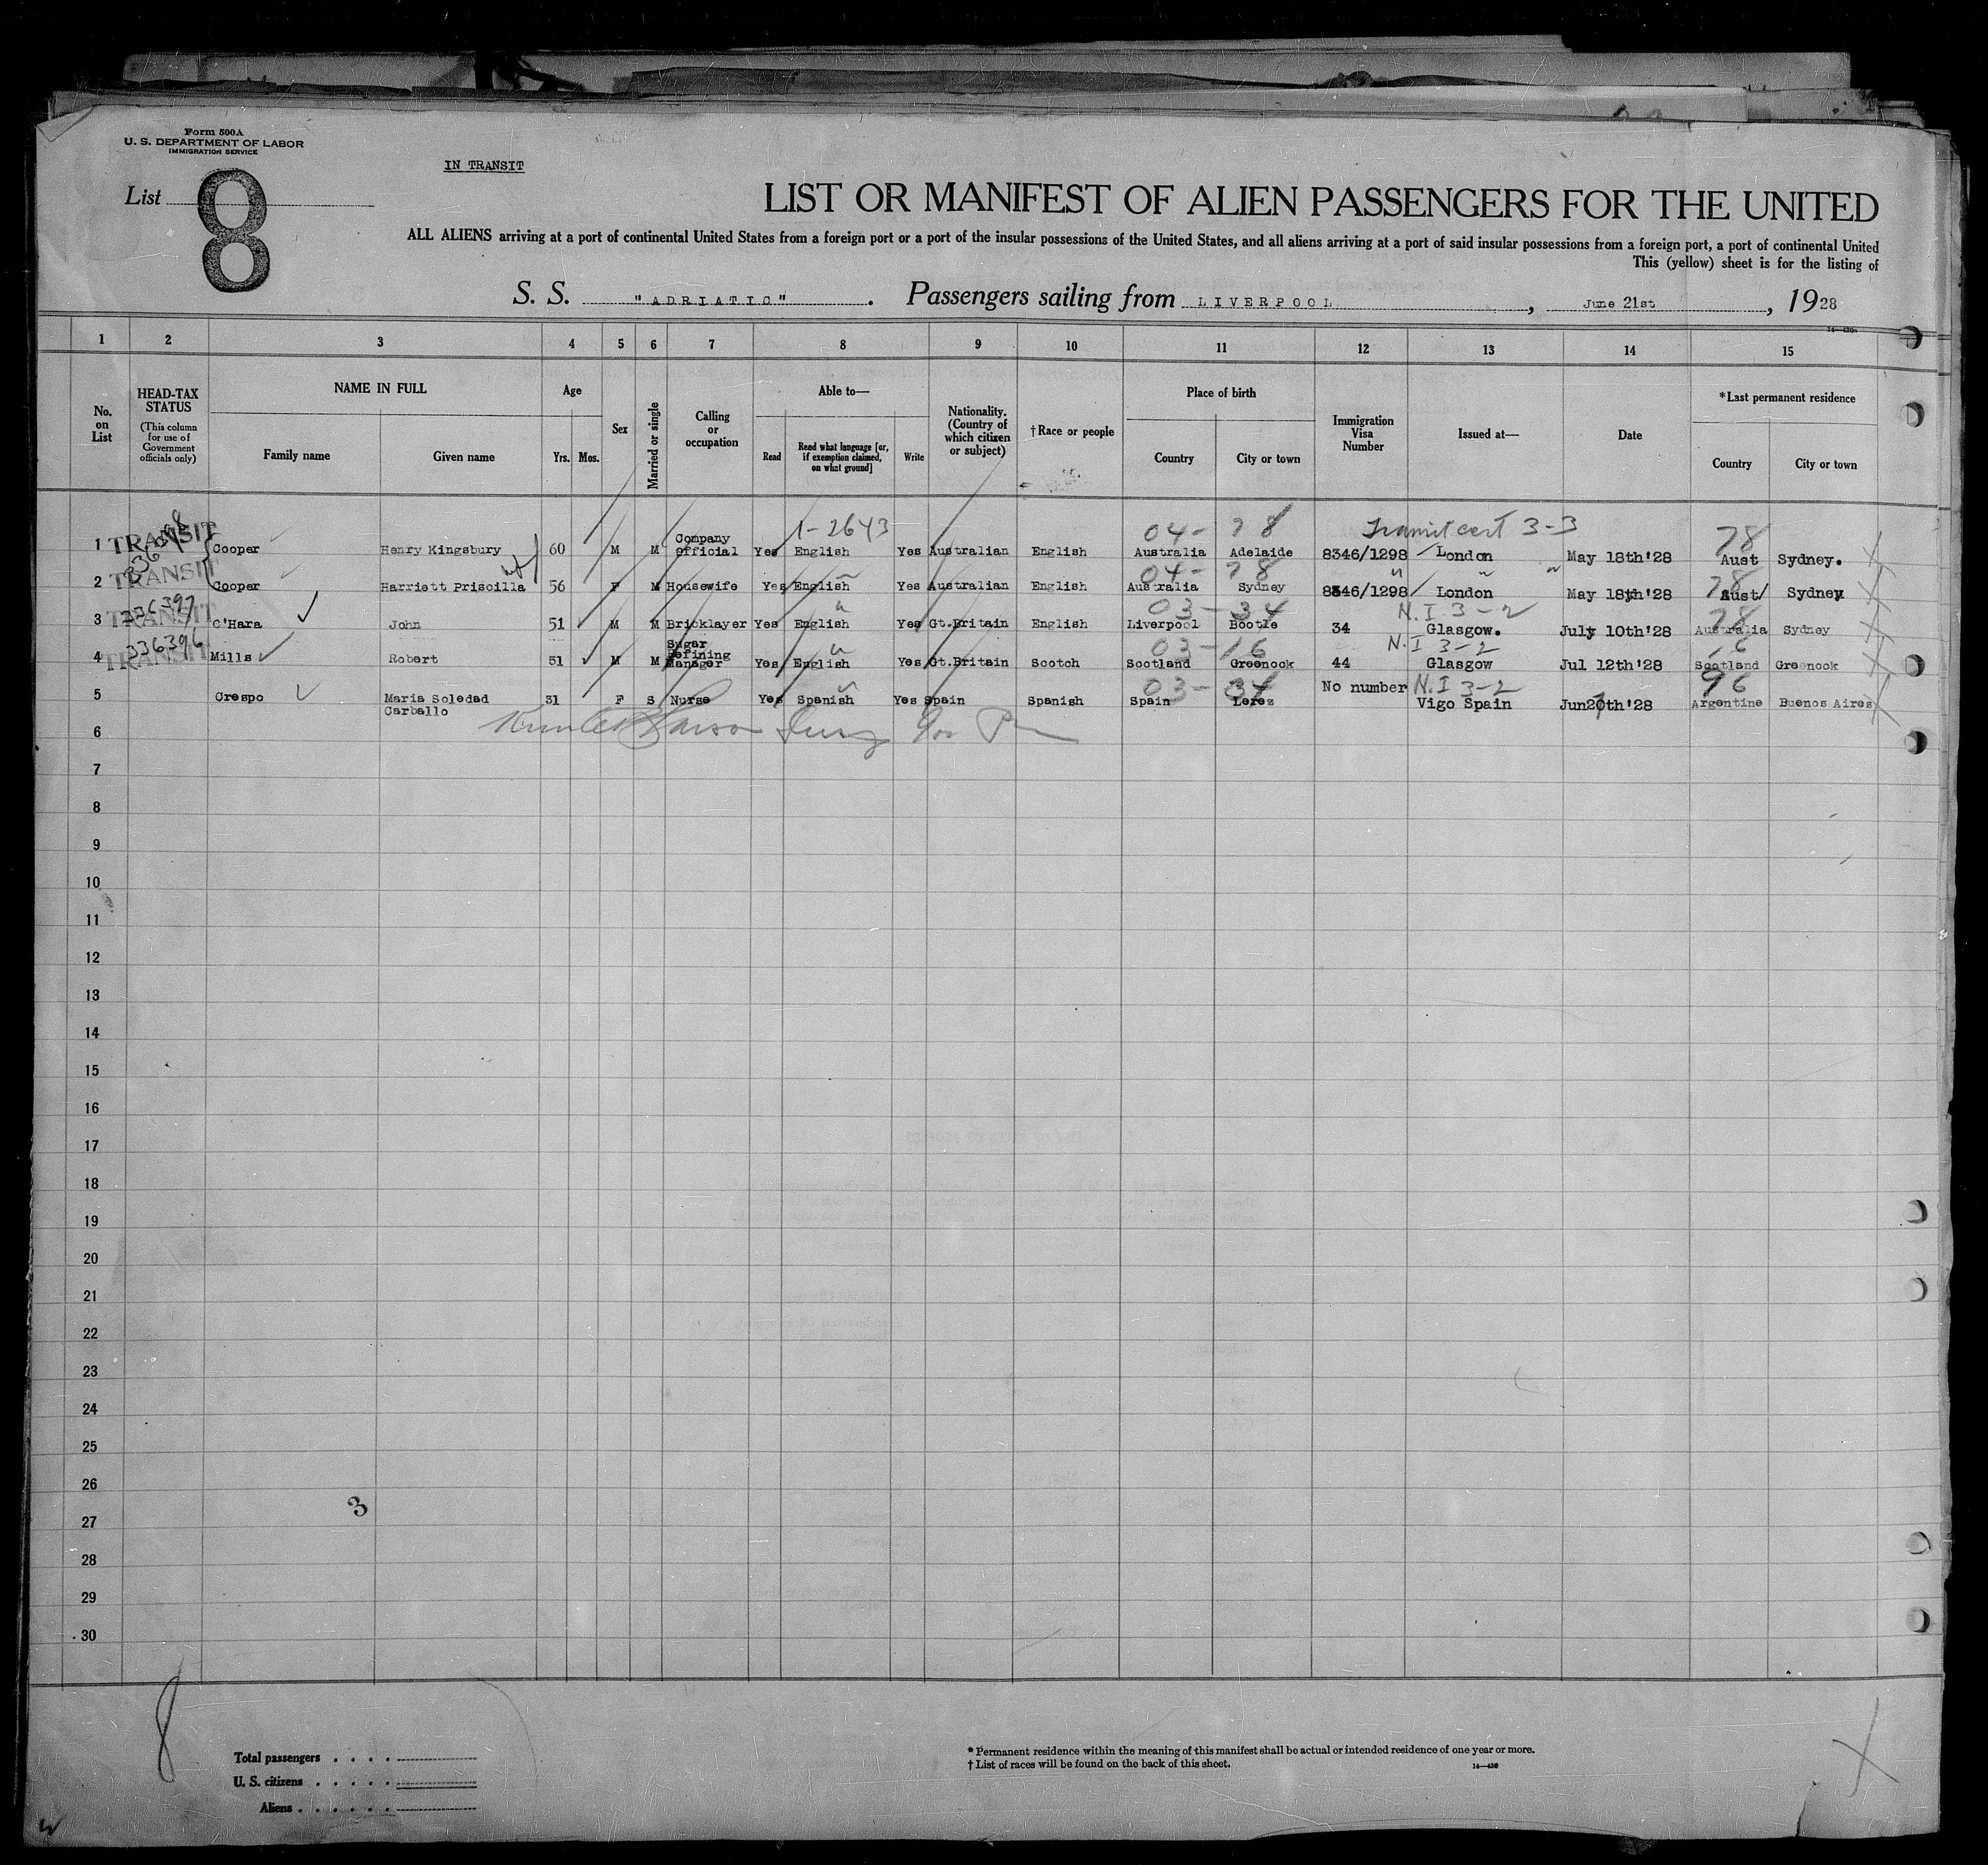 Form 500A
U. S. DEPARTMENT OF LABOR
IMMIGRATION SERVICE
IN TRANSIT
List 8
LIST OR MANIFEST OF ALIEN PASSENGERS FOR THE UNITED
ALL ALIENS arriving at a port of continental United States from a foreign port or a port of the insular possessions of the United States, and all aliens arriving at a port of said insular possessions from a foreign port, a port of continental United
This (yellow) sheet is for the listing of
S. S. "ADRIATIC". Passengers sailing from LIVERPOOL, June 21st, 1928
1 2 3 4 5 6 7 8 9 10 11 12 13 14 15
No. on List
HEAD-TAX STATUS (This column for use of Government officials only)
NAME IN FULL
Family name Given name
Age
Yrs. Mos.
Sex
Married or single
Calling or occupation
Able to—
Read Read what language [or, if exemption claimed, on what ground] Write
Nationality. (Country of which citizen or subject)
†Race or people
Place of birth
Country City or town
Immigration Visa Number
Issued at—
Date
*Last permanent residence
Country City or town
1-2643 04- 78 Transit cert 3-3 78
1 TRANSIT Cooper Henry Kingsbury 60 M M Company Official Yes English Yes Australian English Australia Adelaide 8346/1298 London May 18th'28 Aust Sydney.
04- 78 " " " 78
2 TRANSIT Cooper Harriett Priscilla 56 F M Housewife Yes English Yes Australian English Australia Sydney 8346/1298 London May 18th'28 Aust Sydney
336397 03-34 N.I 3-2 78
3 TRANSIT O'Hara John 51 M M Bricklayer Yes English Yes Gt.Britain English Liverpool Bootle 34 Glasgow. July 10th'28 Australia Sydney
336396 03-16 N.I 3-2 16
4 TRANSIT Mills Robert 51 M M Sugar Refining Manager Yes English Yes Gt.Britain Scotch Scotland Greenock 44 Glasgow Jul 12th'28 Scotland Greenock
03-34 N.I 3-2 96
5 Crespo Maria Soledad Carballo 31 F S Nurse Yes Spanish Yes Spain Spanish Spain Lerez No number Vigo Spain Jun20th'28 Argentine Buenos Aires
6
7
8
9
10
11
12
13
14
15
16
17
18
19
20
21
22
23
24
25
26
3
27
28
29
30
8
Total passengers
U. S. citizens
Aliens
* Permanent residence within the meaning of this manifest shall be actual or intended residence of one year or more.
† List of races will be found on the back of this sheet.
14—430